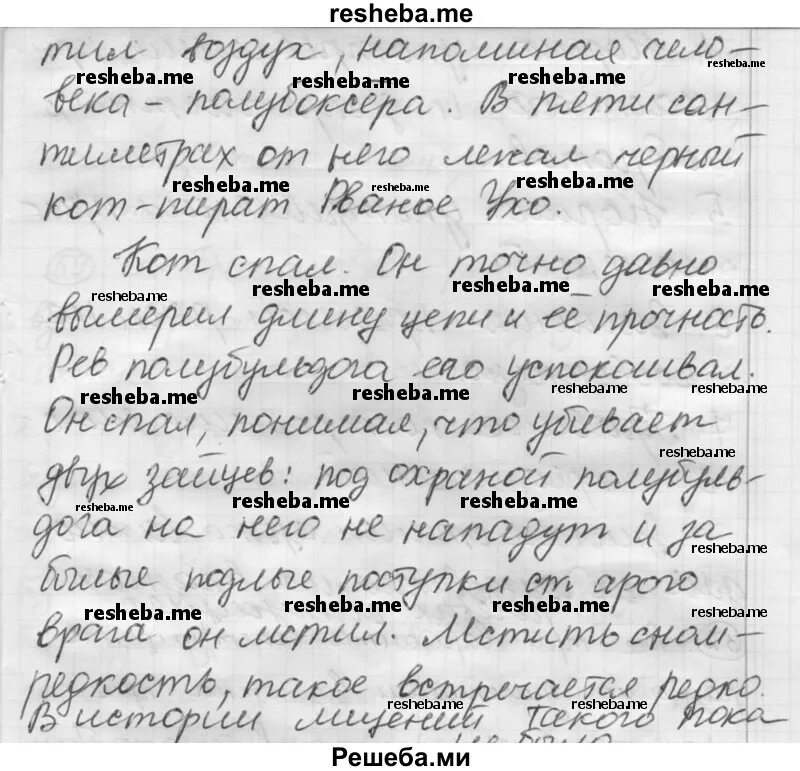 resheba.me
тил воздух, напоминая чело-
века - полубоксёра. В пяти сан-
тиметрах от него лежал черный
кот-пират Рваное Ухо.
Кот спал. Он точно давно
вымерил длину цепи и её прочность.
Рев полубульдога его успокаивал.
Он спал, понимал, что убивает
двух зайцев: под охраной полубуль-
дога на него не нападут и за
былые подлые поступки старого
врага он мстил. Мстить сном-
редкость, такое встречается редко.
В истории мщений такого пока
не было
Решеба.ми